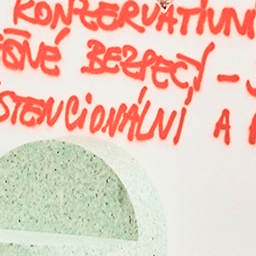 KONZERVATIVNÍ
BEZPEČÍ –
STENCIONÁLNÍ A